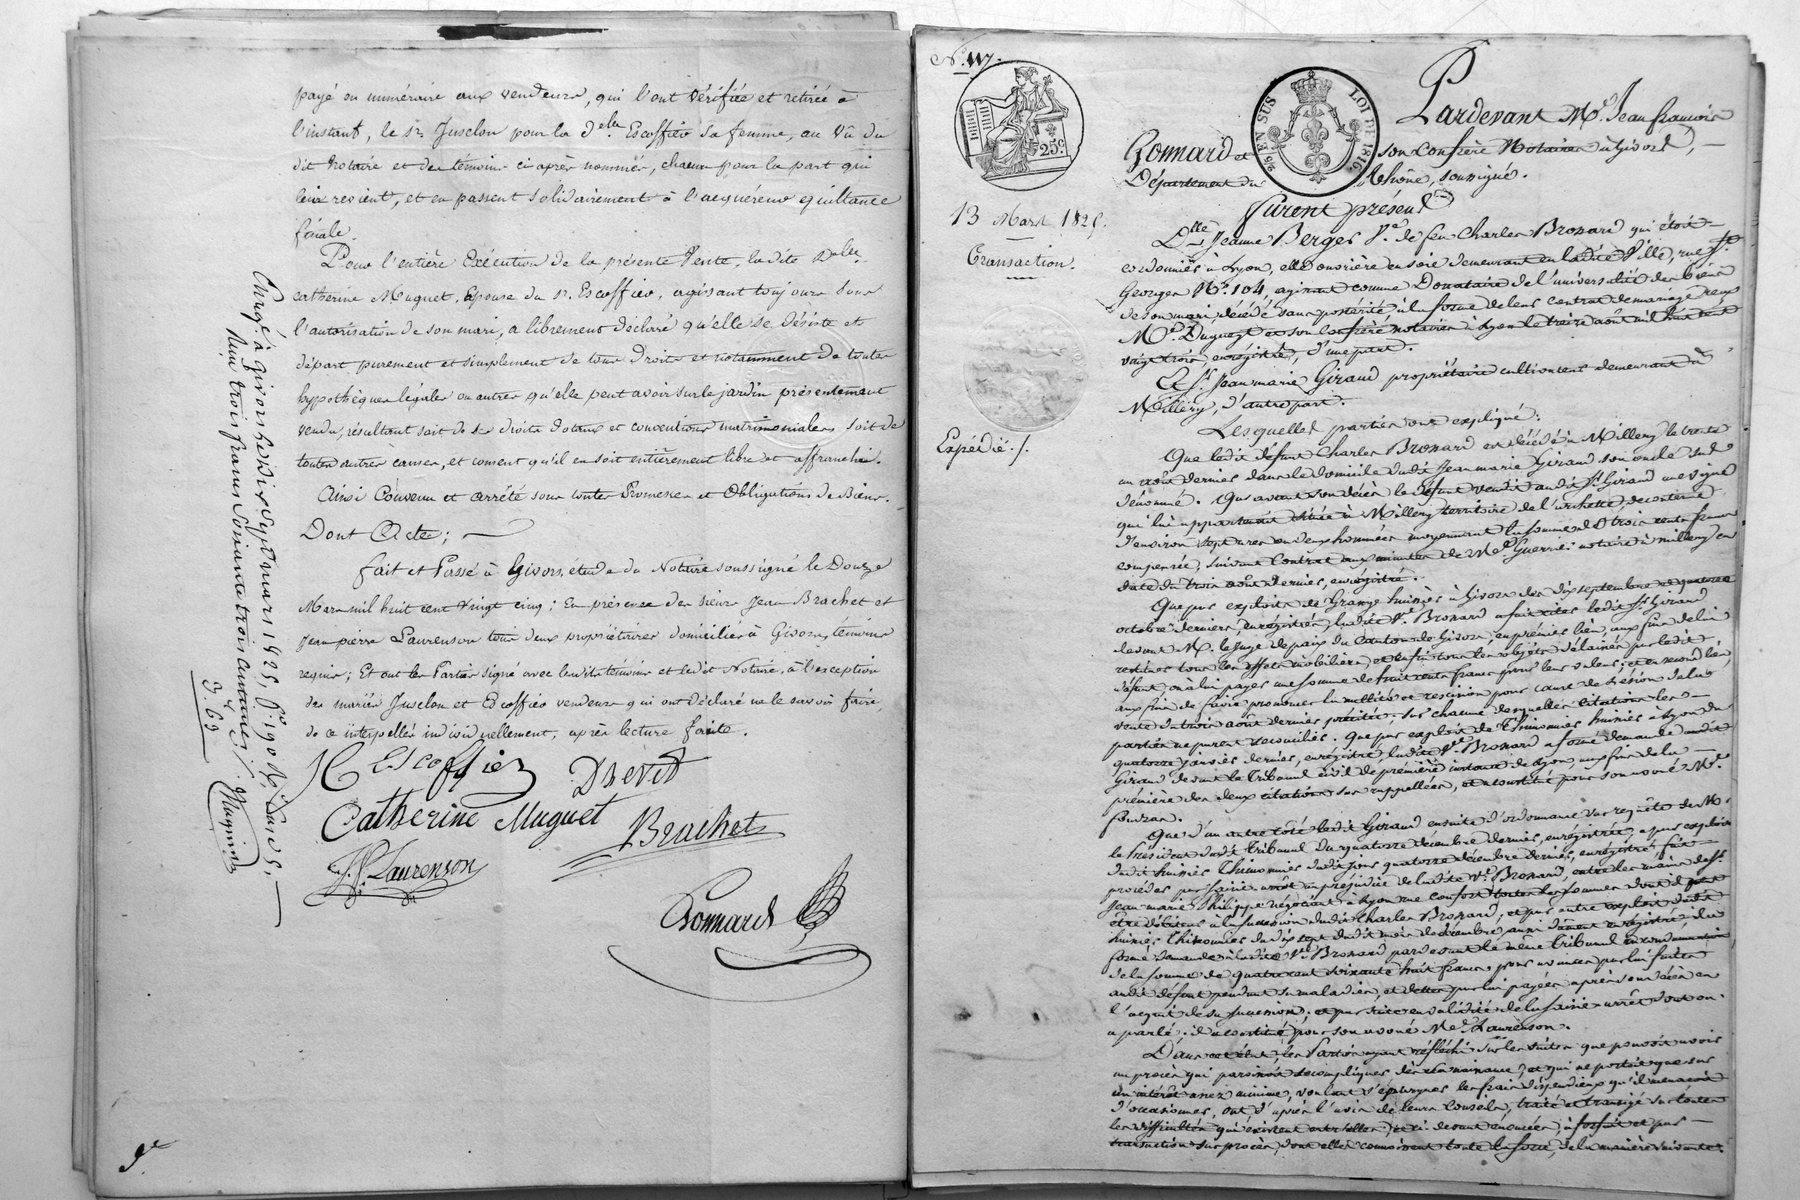 payé en numéraire aux vendeurs, qui l'ont vérifiée et retirée à
l'instant, le sr. Jusclon pour la d.elle Escoffier sa femme, au vû du
dit Notaire et des témoins ci après nommés, chacun pour la part qui
leur revient, et en passent solidairement à l'acquéreur quittance
finale.
Pour l'entière Exécution de la présente Vente, la dite D.elle
catherine Muguet, Epouse du Sr. Escoffier, agissant toujours sous
l'autorisation de son mari, a librement déclaré qu'elle se désiste et
départ purement et simplement de tous droits et notamment de toutes
hypothèques légales ou autres qu'elle peut avoir sur le jardin présentement
vendu, résultant soit de ses droits dotaux et conventions matrimoniales soit de
toutes autres causes, et consent qu'il en soit entièrement libre et affranchi.
Ainsi Convenu et arrêté sous toutes Promesses et Obligations de Biens.
Dont Acte;
fait et Passé à Givors, étude du Notaire soussigné le Douze
Mars mil huit cent vingt cinq; En présence des sieurs Jean Brachet et
Jean pierre Laurenson tous deux propriétaires domiciliés à Givors, témoins
requis; Et ont les Parties signé avec lesdits témoins et ledit Notaire, à l'exception
des mariés Jusclon et Escoffier vendeurs qui ont déclaré ne le savoir faire,
de ce interpellés individuellement, après lecture faite.
Escoffier Drevet
Catherine Muguet
Brachet
J. P. Laurenson
Gonnard
Enregé. à Givors le dix sept mars 1825, fo. 190
trois francs soixante trois centimes
3,63
Mugnier
No. 117.
25 c.
25 EN SUS
LOI DE 1816
Pardevant Me. Jean françois
Gonnard et son confrère Notaires à Givors,
Département du Rhône, soussigné.
13 Mars 1825.
Transaction.
Expédié ./.
furent présens
D.lle Jeanne Berger Ve. de feu Charles Bronard qui étoit
cordonnier à Lyon, elle ouvrière en soie demeurant en ladite Ville, rue St.
Georges No. 104, agissant comme Donataire de l'universalité des biens
de son mari décédé sans postérité à la forme de leur contrat de mariage reçu
Me. Dugueyt et son confrère notaires à Lyon le treize août mil huit cent
vingt trois, enregistré, d'une part.
Et Sr. Jean marie Giraud propriétaire cultivateur demeurant à
Millery, d'autre part.
Lesquelles parties ont expliqué:
Que ledit défunt Charles Bronard est décédé à Millery le trente
un août dernier dans le domicile dudit Jean marie Giraud son oncle sus
dénommé. Que avant son décès le défunt vendit audit Sr. Giraud une vigne
qui lui appartenait située à Millery territoire de l'archette, de contenue
d'environ sept ares ou deux hommées moyennant la somme de trois cents francs
compensée, suivant Contrat aux minutes de Me. Guerrier notaire à Millery en
date du trois août dernier, enregistré.
Que par exploits de Grange huissier à Givors des dix septembre et quatorze
octobre derniers, enregistrés, ladite Ve. Bronard a fait citer ledit Sr. Giraud
devant M. le Juge de paix du canton de Givors, en premier lieu, aux fins de lui
restituer tous les effets mobiliers, et enfin tous les objets délaissés par ledit
défunt ou à lui payer une somme de huit cents francs pour leur valeur; et en second lieu,
aux fins de faire prononcer la nullité et rescision pour cause de lésion de la
vente du trois août dernier précitée; sur chacune desquelles citations les
parties ne purent se concilier. Que par exploit de Thimonier huissier à Lyon du
quatorze janvier dernier, enregistré, ladite Ve. Bronard a formé demande audit
Giraud devant le Tribunal civil de première instance de Lyon, aux fins de la
première des deux citations sus rappellées, et a constitué pour son avoué Me.
fourran.
Que d'un autre côté ledit Giraud ensuite d'ordonnance sur requête de M.
le Président dudit Tribunal du quatorze décembre dernier, enregistrée, a par exploit
dudit huissier Thimonier dudit jour quatorze décembre dernier, enregistré, fait
procéder par saisie arrêt au préjudice de ladite Ve. Bronard, entre les mains de Sr.
Jean marie Philippe négociant à Lyon
être débiteur à la succession dudit Charles Bronard, et par autre exploit dudit
huissier Thimonier du dix sept dudit mois de décembre aussi dûment enregistré
formé demande à ladite Ve. Bronard pardevant le même Tribunal en condamnation
de la somme de quatre cent soixante huit francs, pour avances par lui faites
audit défunt pendant sa maladie, et dettes par lui payées après son décès en
l'acquit de sa succession; et par suite en validité de la saisie arrêt dont on
a parlé; il a constitué pour son avoué Me. Laurenson.
Dans cet état, les Parties ayant réfléchi sur les suites que pouvait avoir
un procès qui paroissoit se compliquer dès sa naissance, et qui ne portoit que sur
un intérêt assez minime, voulant s'épargner les frais dispendieux qu'il menaçoit
d'occasionner, ont, d'après l'avis de leurs Conseils, traité et transigé sur toutes
les difficultés qui existent entr'elles, et ci devant énoncées, à forfait et par
transaction sur procès, dont elles connoissent toute la force, de la manière suivante.